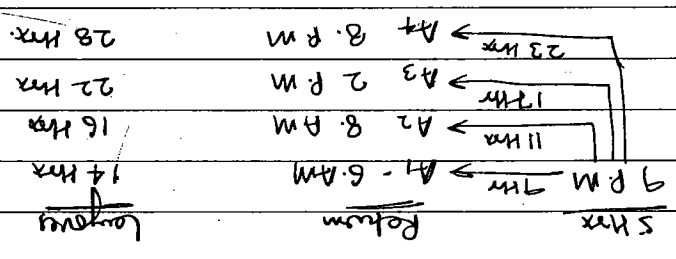 5 Hrs Return Layover
9 P.M 9Hr → A1 - 6.AM 14 Hrs
11 Hr → A2 8. AM 16 Hrs
17Hr → A3 2 P.M 22 Hrs
23 Hrs → A4 8. P.M 28 Hrs.